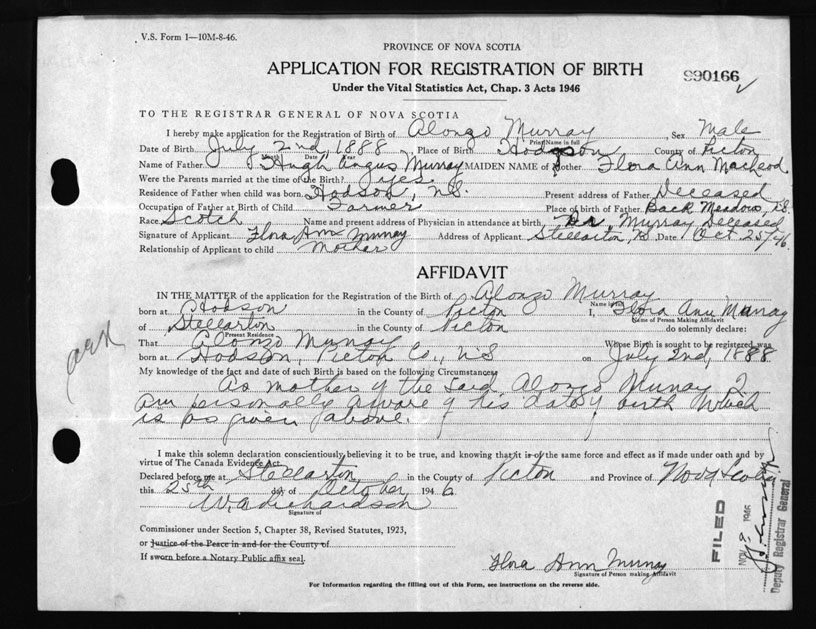 V.S. Form 1—10M-8-46.
PROVINCE OF NOVA SCOTIA
APPLICATION FOR REGISTRATION OF BIRTH
990166
Under the Vital Statistics Act, Chap. 3 Acts 1946
TO THE REGISTRAR GENERAL OF NOVA SCOTIA
I hereby make application for the Registration of Birth of Alonzo Murray Sex Male
Print Name in full
Date of Birth July 2nd, 1888 Place of Birth Hodson County of Picton
Month Date Year
Name of Father Hugh Angus Murray MAIDEN NAME of Mother Flora Ann Macleod
Were the Parents married at the time of the Birth? yes.
Residence of Father when child was born Hodson, N.S. Present address of Father Deceased
Occupation of Father at Birth of Child Farmer Place of birth of Father Back Meadow, N.S.
Race Scotch Name and present address of Physician in attendance at birth, Dr. Murray Deceased
Signature of Applicant Flora Ann Murray Address of Applicant Stellarton, NS Date Oct 25/46.
Relationship of Applicant to child Mother
AFFIDAVIT
IN THE MATTER of the application for the Registration of the Birth of Alonzo Murray
Name in full
born at Hodson in the County of Picton I, Flora Ann Murray
Name of Person Making Affidavit
of Stellarton in the County of Picton do solemnly declare:
Present Residence
That Alonzo Murray Whose Birth is sought to be registered was
born at Hodson, Picton Co., N.S on July 2nd, 1888
My knowledge of the fact and date of such Birth is based on the following Circumstances
As mother of the said Alonzo Murray I
am personally aware of his date of birth which
is as given above.
I make this solemn declaration conscientiously believing it to be true, and knowing that it is of the same force and effect as if made under oath and by
virtue of The Canada Evidence Act.
Declared before me at Stellarton in the County of Picton and Province of Nova Scotia
this 25th day of October, 1946
W.A. Richardson
Signature of
Commissioner under Section 5, Chapter 38, Revised Statutes, 1923,
or Justice of the Peace in and for the County of
If sworn before a Notary Public affix seal.
Flora Ann Murray
Signature of Person making Affidavit
FILED
NOV 9 1946
Deputy Registrar General
For Information regarding the filling out of this Form, see instructions on the reverse side.